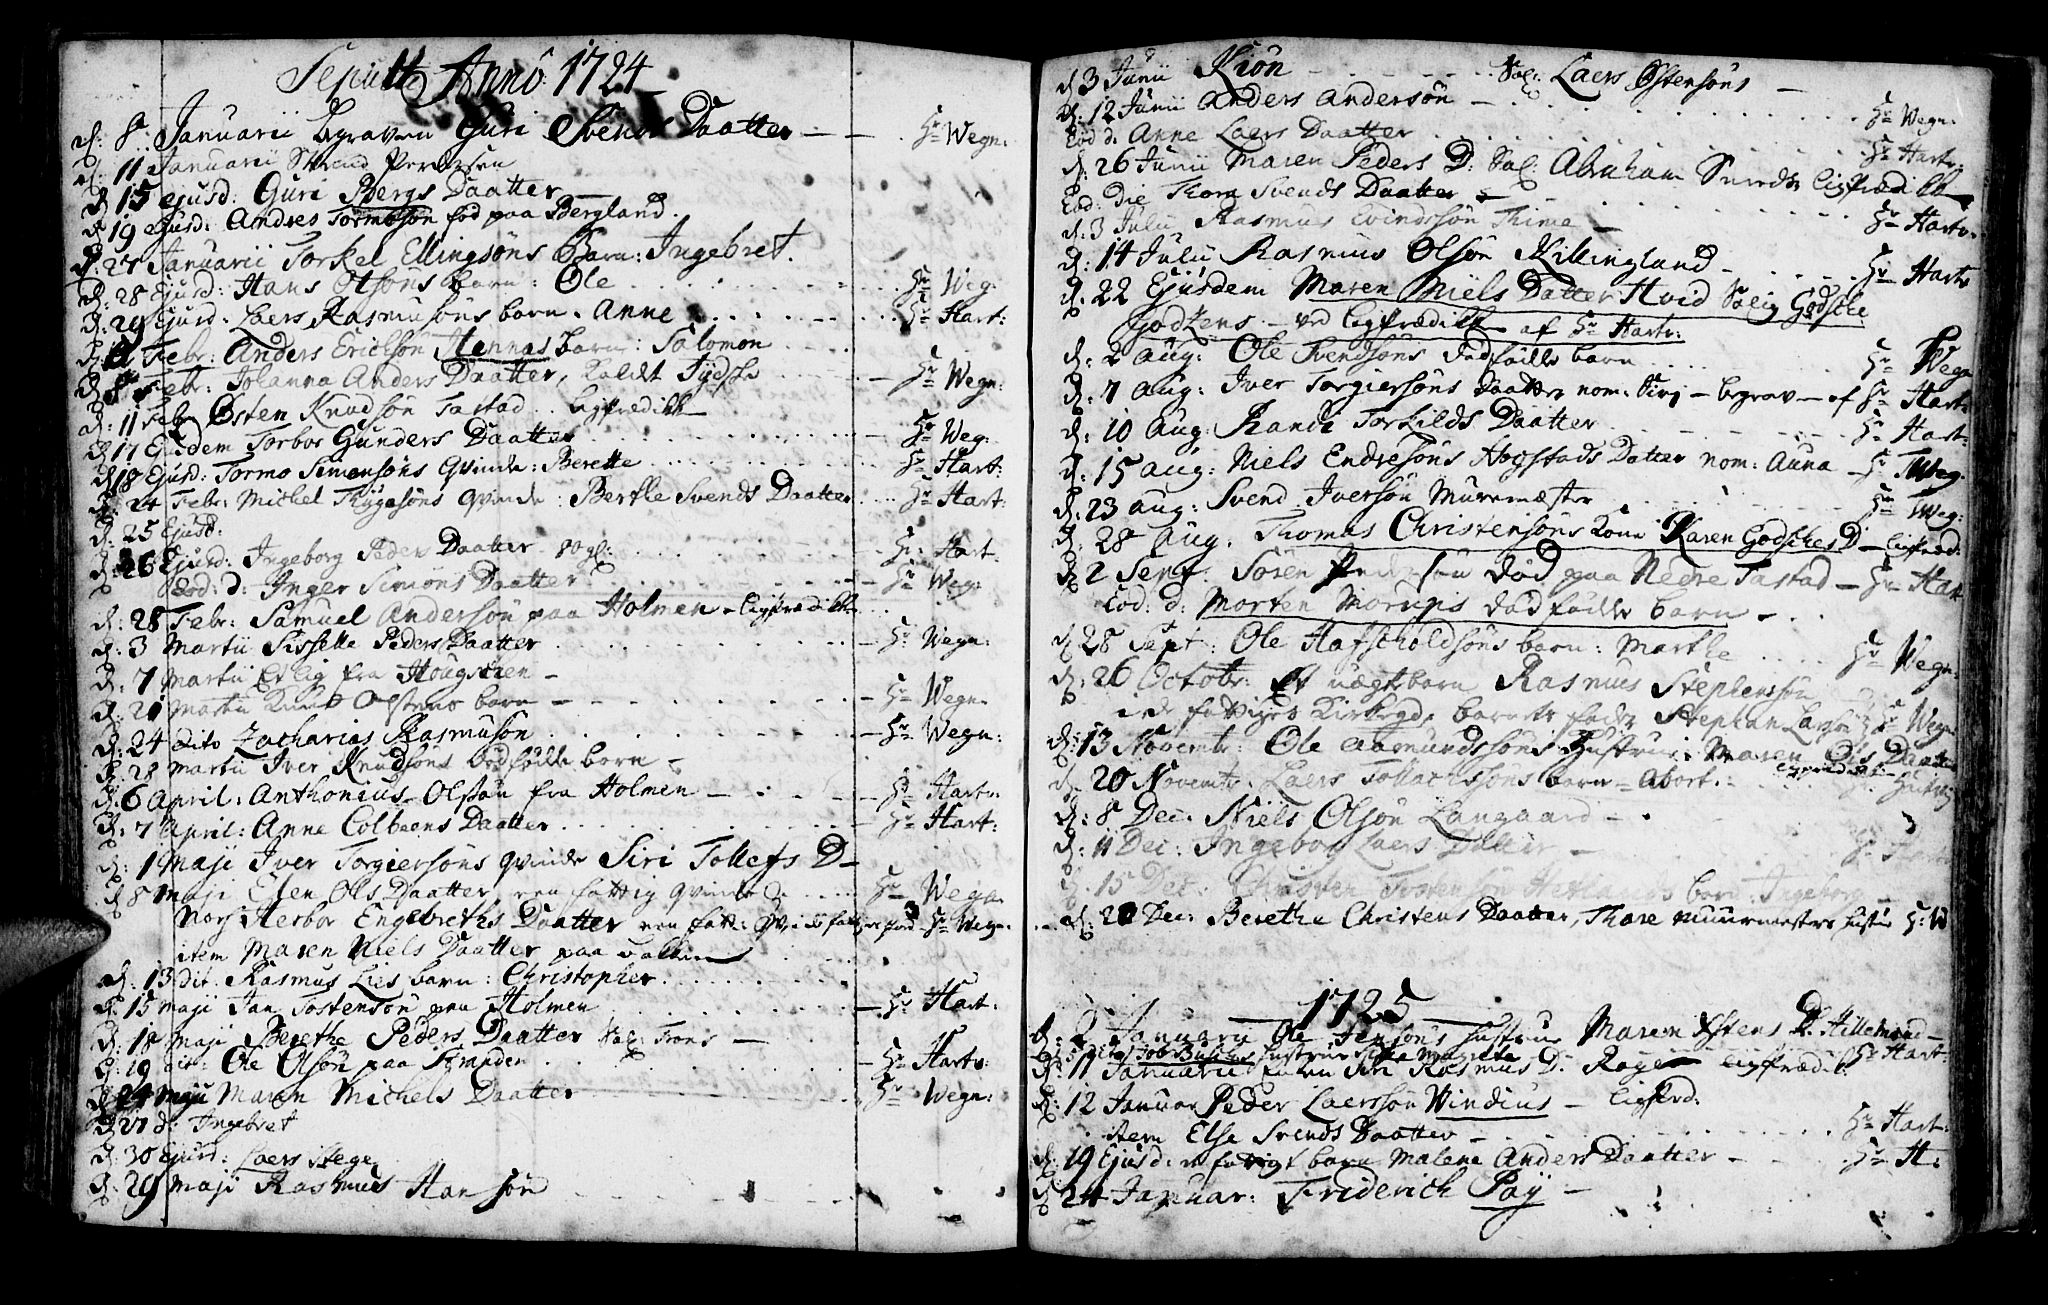 Sepult: Anno 1724
d: 8 Januarii begraven Guri Svends Daatter - - Hr Wegn:
d: 11 Januarii Pedersen
d: 15 ejusd: Guri Bergs Daatter
d: 19 Ejusd: Andres Tormosøn fød paa Bergland.
d: 27 Januarii Torkel Ellingsøns Barn: Ingebret.
d: 28 Ejusd: Hans Olsøns barn: Ole Hr Weg:
d: 29 Ejusd: Laers Rasmusøns barn. Anne Hr Hart:
Febr: Anders Ericksøn Hennas barn: Salomon
Febr: Johanna Anders Daatter, kaldt Tydske - Hr Wegn:
d: 11 Febr Østen Knudsøn Tastad. Ligprædik
d: 17 Ejusdem Torbor Gunders Daatter Hr Weg:
d: 18 Ejusd: Tormo Simonsøns qvinde: Berette Hr Hart:
d: 24 Febr: Michel Thygesøns qvinde: Berthe Svends Daatter Hr Hart:
d: 25 Ejusd:
d: 26 Ejusd: Ingeborg Peders Daatter Hr Hart
Eod: d: Inger Simons Daatter Hr Weg:
d: 28 Febr: Samuel Andersøn paa Holmen - Ligprædik
d: 3 Martii Sisselle Peders Daatter - Hr Wegn:
d: 7 Martii Et lig fra Hougsteen -
d: 21 Martii Knud Olstens barn - Hr Wegn.
d: 24 dito Zacharias Rasmusøn - Hr Wegn:
d: 28 Martii Iver Knudsøns dødfødde barn -
d: 6 April: Anthonius Olsøn fra Holmen - Hr Hartv:
d: 7 April: Anne Colbeens Daatter - Hr Hart:
d: 1 Maji Iver Torgiersøns qvinde Siri Tollefs D-
d: 8 Maji Elen Ols Daatter, en fattig qvinde Hr Wegn.
Nors Herbor Engebreths Daatter en fatt: Hr Wegn:
item Maren Niels Daatter paa
d: 13 dit. Rasmus Lies barn: Christopher
d: 15 maji Jan Tostensøn paa Holmen - Hr Hart:
d: 18 Maji Berethe Peders Daatter Sal:
d: 19 dit: Ole Olsøn paa - Hr Hartv:
d: 24 Maji Maren Michels Daatter Hr Wegn:
d: 27 d: Ingebret
d: 30 Ejusd: Laers Stege
d: 29 Maji Rasmus Hansøn
d: 3 Junii Kion Sal: Laers Østensøns -
d: 12 Junii Anders Andersøn - Hr Wegn:
Eod d: Anne Laers Daatter Hr Hartv:
d: 26 Junii Maren Peders D: Sal: Abraham Ligprædik
Eod: Die Thora Svends Daatter - Hr Hartv:
d: 3 Julii Rasmus Evindssøn Thime -
d: 14 Julii Rasmus Olsøn Killingland - Hr Hartv
d: 22 Ejusdem Maren Niels Datter Hvid Salig Godsche
Godtzens - ved Ligprædik af Hr Hartv:
d: 2 Aug: Ole Svendsøns dødfødde barn Hr Wegn
d: 7 Aug: Iver Torgiersøns Daatter nom: Siri - begrav - af Hr Hart:
d: 10 Aug: Randi Torkilds Daatter Hr Hart:
d: 15 Aug: Niels Endresøns Hogstads Datter nom: Anna - Hr Weg:
d: 23 Aug: Svend Iversøn Muremæster Hr Weg:
d: 28 Aug. Thomas Christensøns kone Karen Godsches D - Ligpræd:
d: 2 Sept. Søren Pedersøn død paa Nedre Tastad - Hr Hart
Eod: d: Morten Morups dødfødde barn -
d: 28 Sept: Ole Hafscholdsøns barn: Marthe Hr Wegn:
d: 26 Octobr: Et uægte barn Rasmus Stephenssøn
fattiges Kirkegd, barnets fader Stephan Larsøn Hr Wegn
d: 13 Novembr: Ole Aamundssøns Hustrue Maren Ols Daatter
Ligprædik
d: 20 Novembr: Laers Tollachssøns barn - Abort.
d: 8 Dec: Niels Olsøn Langaard -
d: 11 Dec: Ingebor Laers Datter - Hr Hartv
d. 15 Dec: Christen Tostensøn barn: Ingeborg -
d: 20 Dec: Berethe Christens Daatter, Thore Muurmesters hustru H: W
1725
d: 2 Januarii Ole Jensøns hustrue Maren Østens D. Hillemond -
hustrue Magrete Hr Hart:
d: 11 Januarii Siri Rasmus D. Rage Ligprædik
d: 12 Januar Peder Laerssøn Windius - Ligpræd.
item Else Svends Daatter - Hr Hart:
d: 19 Ejusd: et fattigt barn Malene Anders Daatter - Hr H:
d: 24 Januar: Friderich Pay -